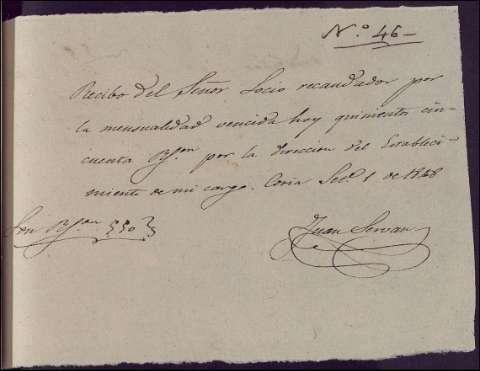 N.º 46
Recibo del Señor Socio recaudador por
la mensualidad vencida hoy quinientos cin-
cuenta Rs.vn por la direccion del Estableci-
miento de mi cargo. Coria Set.e 1 de 1848
Son Rs.vn 550
Juan Servan